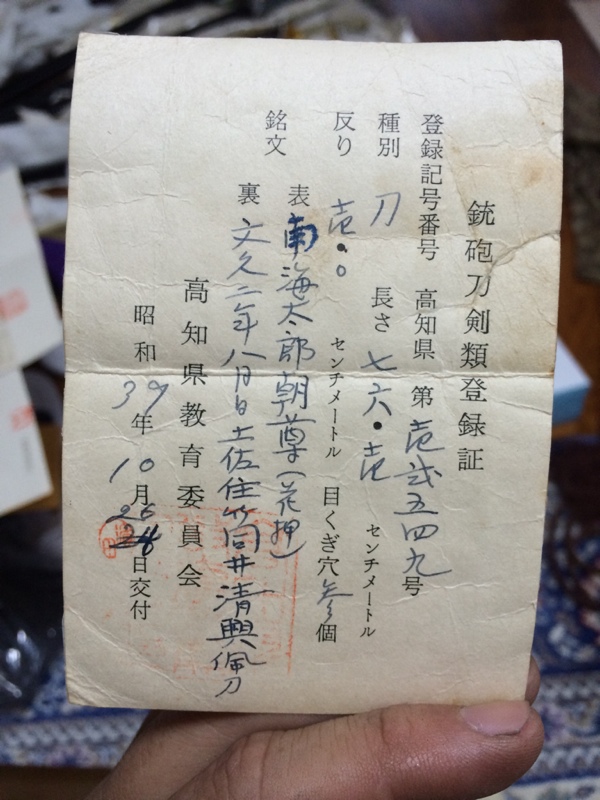 銃砲刀剣類登録証
登録記号番号 高知県 第壱弐五四九号
種別 刀 長さ 七六・壱 センチメートル
反り 壱・〇 センチメートル 目くぎ穴 参個
銘文 表 南海太郎朝尊(花押)
裏 文久二年八月日土佐住筒井清興佩刀
高知県教育委員会
昭和39年10月26日交付